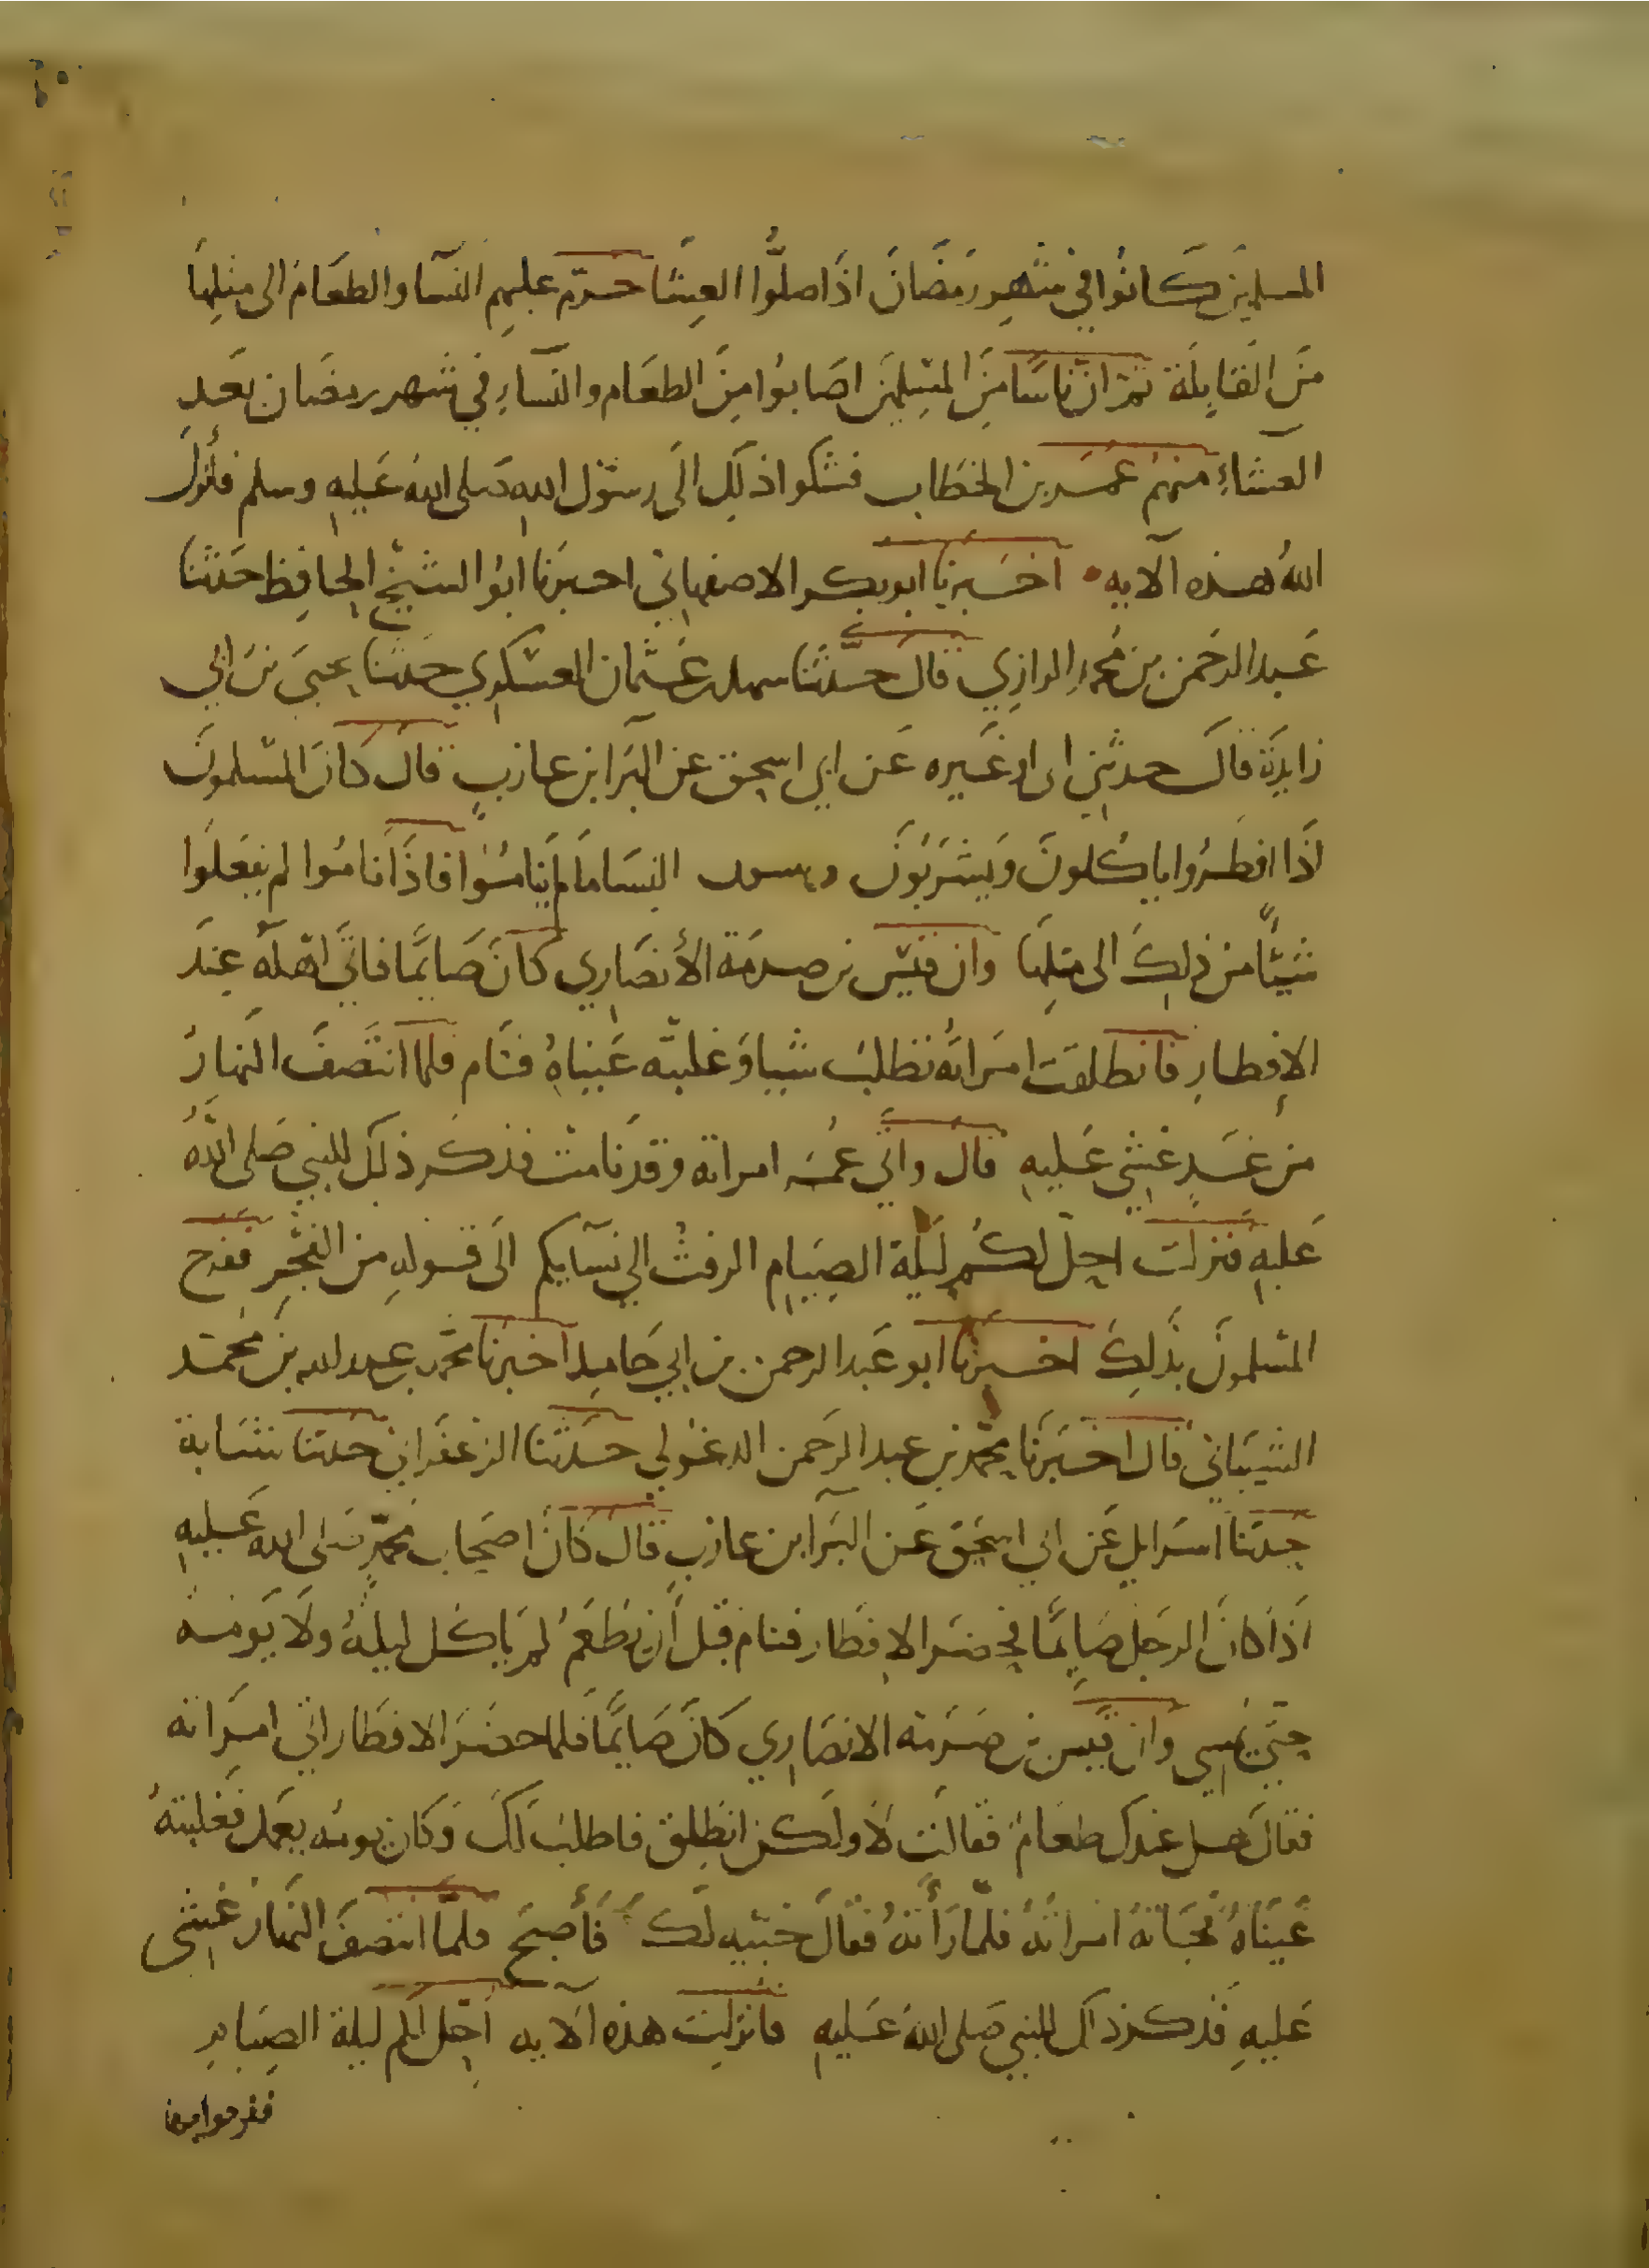 المسلمين كَانوُا في شهرِ رمضَانَ اذَا صلوُّا العِشَا حرّم عليهم النسَا والطعَامُ الى مثلِهَا
منَ القَابِلَة ثم ان ناسًا منَ المسلمينَ اصَابوُا مِنَ الطعَام والنسَآءِ في شهر رمضان بعد
العشَآءِ منهمُ عُمَر بن الخطاب فشكوا ذلِكَ الى رسُول اللهِ صَلى اللهُ عَليهِ وسلم فأنزلَ
اللهُ هذه الآيه اخبرنا ابو بكر الاصفهاني اخبرَنا ابوُ الشيخ الحافِظ حَدثنا
عَبد الرحَمن بن محمد الرازِي قال حدّثنَا سهل بن عثمان العسكري حدثنا يحيىَ بنَ ابي
زايدَة قَاَل حدثني ابى او غَيره عَن ابي اسحق عن البَرا بن عازبٍ قال كانَ المسلمونَ
اذَا افطرُوا ياكُلونَ وَيشرَبوُنَ ويمسون النسَا مَا لم يَنامُوا فاذَا نامُوا لم يفعَلوا
شيئًا من ذلِكَ الى مثلِهَا وان قيس بن صرمَة الأنصَاري كانَ صَايمًا فاتَى اهلهَ عِندَ
الإفطارِ فانطلقَت امَراتهُ تطلبُ شيا وَغلبته عَيناهُ فنَام فلما انتصَفَ النهارُ
من غَدٍ غشي عَليهِ قال واتي عُمَر امراته وقد نامت فذكَر ذلِكَ للنبي صَلى اللهُ
عَليهِ فنزلت احِلّ لكُم لَيلَة الصِيَامِ الرفثُ الي نسَآيكم الَى قولهِ من الفجرِ ففرح
المسلموُنَ بذَلِكَ اخبرنا ابو عَبد الرحمن بن ابي حَامِد اخبرنَا محمد بن عبد الله بن محمد
الشيبَاني قَال اخبَرنَا محمد بن عبد الرحَمن الدغولي حدَثنا الزعفَراني حدثنا شبَابة
حدثنَا اسرَايل عَن ابي اسحَق عَن البَرآ بن عازبِ قال كانَ اصحَاب محمدٍ صَلى الله عَليهِ
اذَا كانَ الرجل صَايمًا فحضَر الافطَار فنام قبل أن يَطعَمُ لم يَاكل ليلتهُ ولاَ يَومَهُ
حتيّ يمسي وَان قيسَ بن صرمَة الانصَاري كانَ صَايمًا فلما حضَرَ الافطَار اتي امرَاته
فقالَ هل عندك طعَامُ فقالَت لاَ ولكن انطلق فاطلبُ لكَ وَكان يومُه يعمَل فغلبتهُ
عَينَاهُ فجَاتهُ امراتُه فلمّا رَأَتهُ فقالَ خيبه لكَ فَأصبَح فلمّا انتصفَ النهَارُ غشي
عَليهِ فَذكر ذلكَ للنبي صَلى اللهُ عَليهِ فانزلت هذه الآيه احِل لكم ليلة الصيَامِ
ففرحوا بها